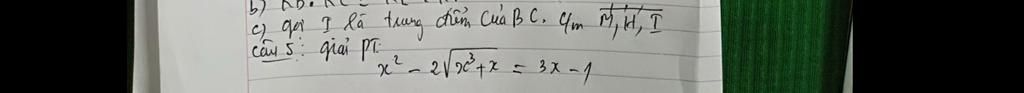 b)
c) gọi I là trung điểm của BC. c/m M, H, I
câu 5: giải PT:
x² - 2√x³+x = 3x - 1